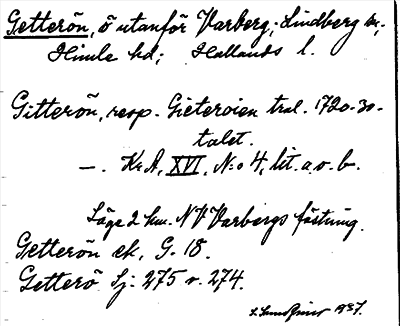 Getterön, ö utanför Varberg; Lindberg sn;
Himle hd; Hallands l.
Gitterön, resp. Gieteroien tral. 1720-30-
talet.
—. KrA, XVI, N:o 4, lit. a o. b.
Läge 2 km. NV Varbergs fästning.
Getterön ek, G. 18.
Getterö Sj: 275 o. 274.
1937.